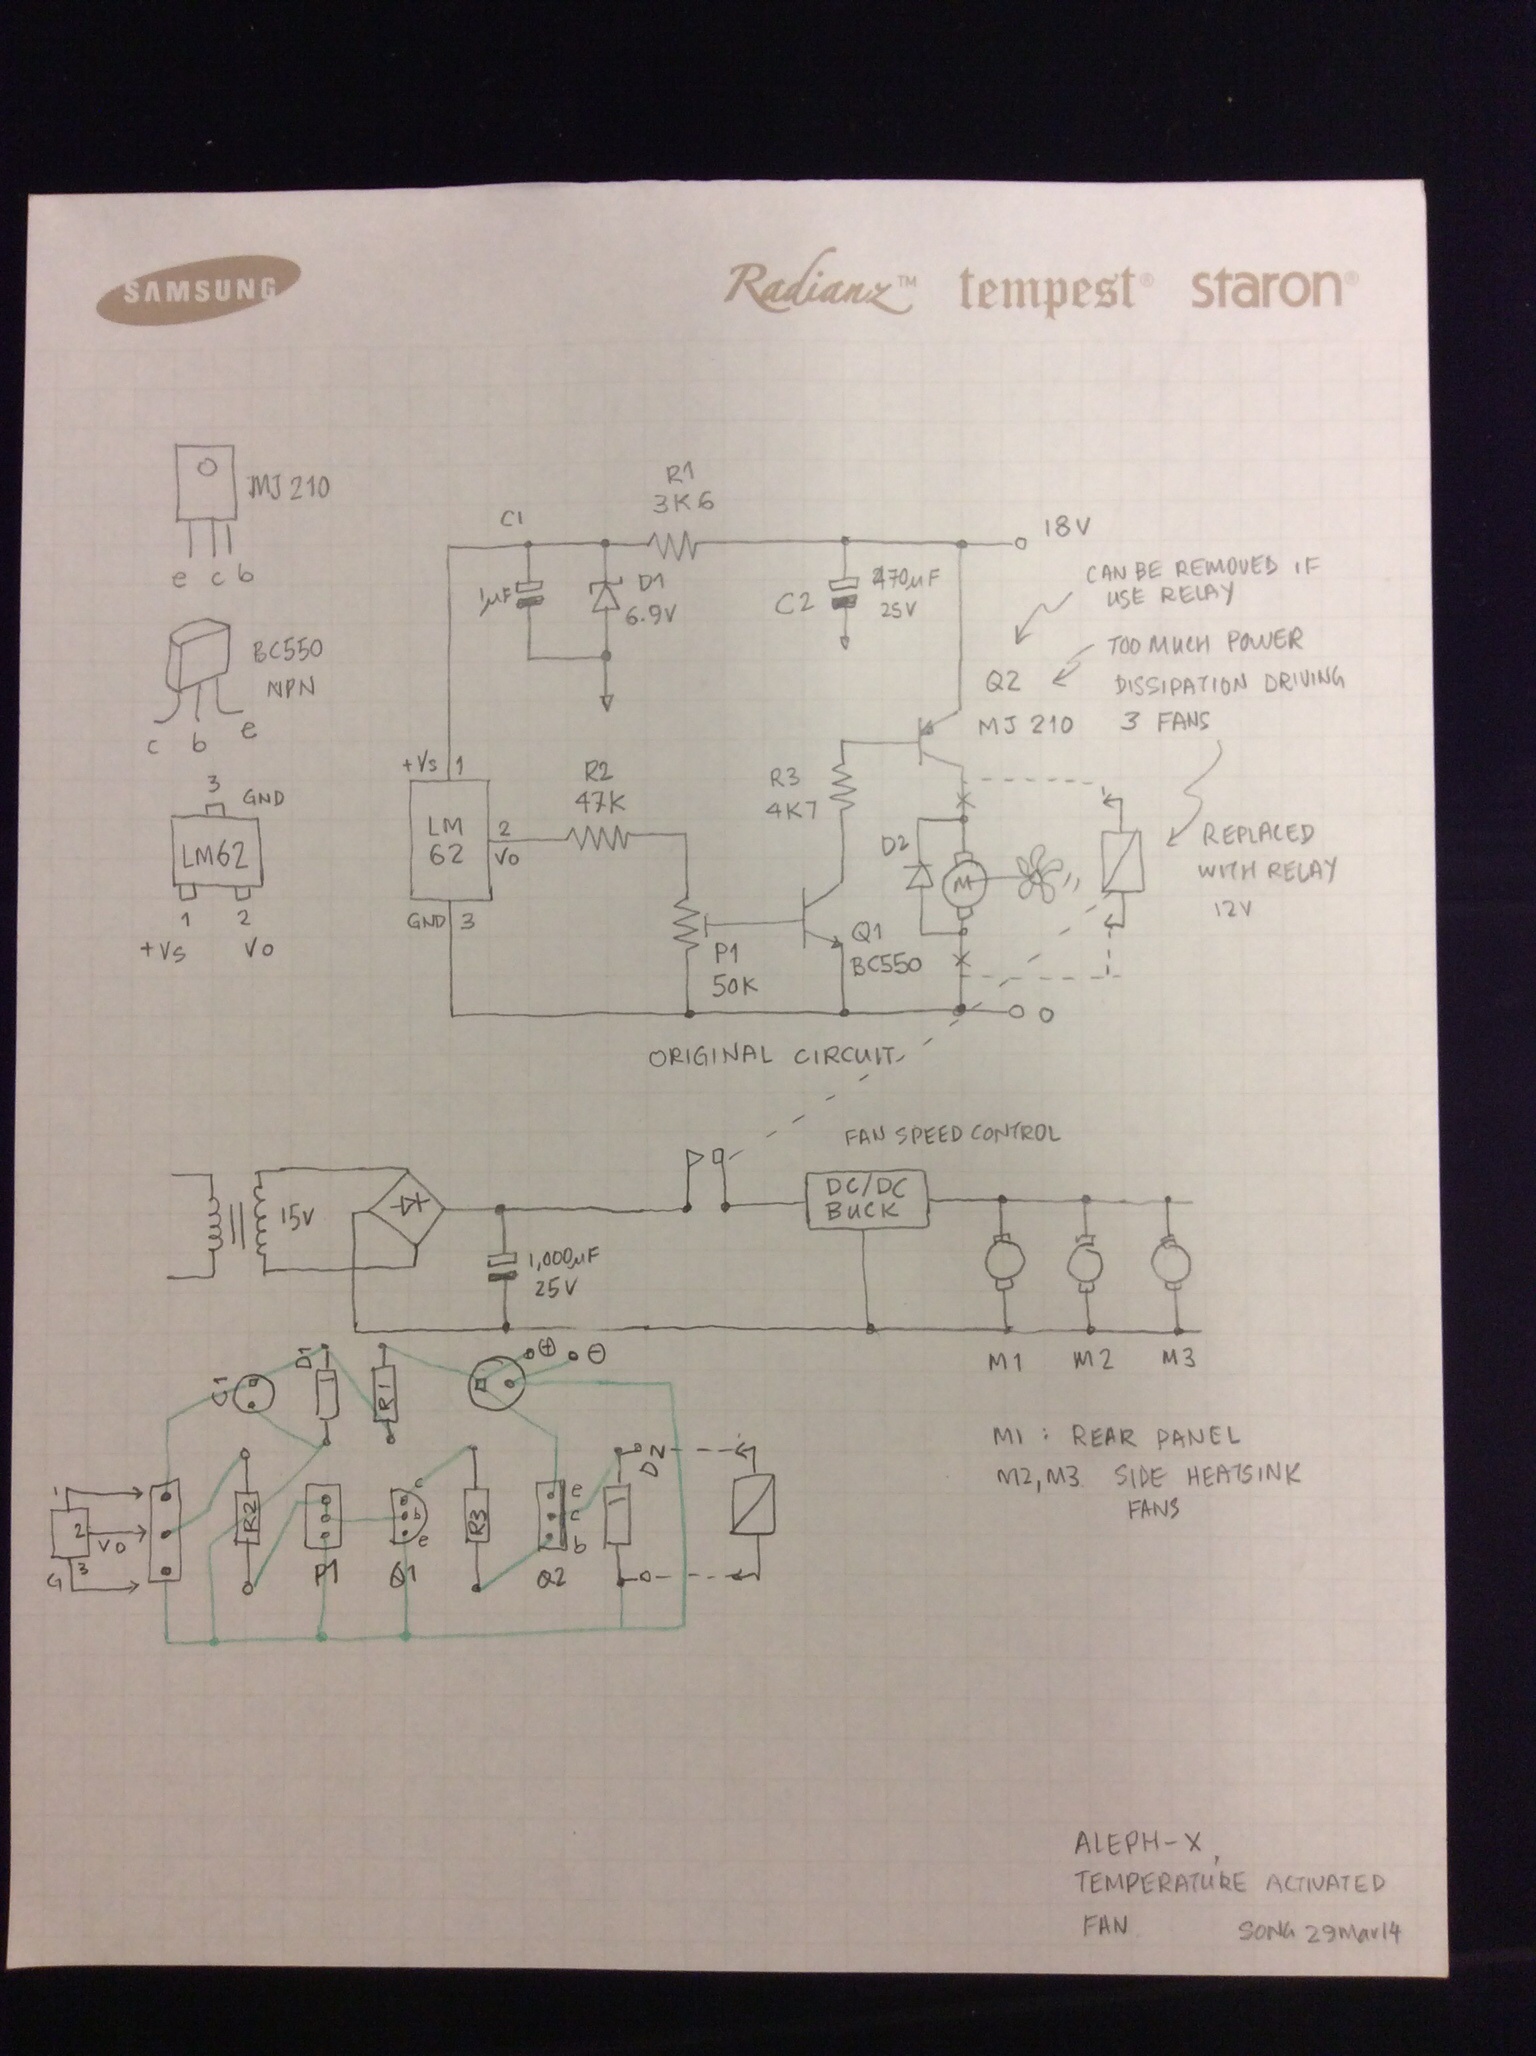 SAMSUNG
Radianz™ tempest® staron®
MJ 210
e c b
BC550
NPN
c b e
3 GND
LM62
1 2
+Vs Vo
C1
1µF
R1
3K6
D1
6.9V
C2
470µF
25V
18V
CAN BE REMOVED IF
USE RELAY
TOO MUCH POWER
DISSIPATION DRIVING
3 FANS
Q2
MJ 210
+Vs 1
LM
62
2
Vo
GND 3
R2
47K
R3
4K7
P1
50K
Q1
BC550
D2
M
REPLACED
WITH RELAY
12V
0
ORIGINAL CIRCUIT
FAN SPEED CONTROL
15V
1,000µF
25V
DC/DC
BUCK
M1 M2 M3
M1 : REAR PANEL
M2, M3 SIDE HEATSINK
FANS
C1
D1
R1
+ -
1
2 VO
G 3
R2
P1
c
b
e
Q1
R3
e
c
b
Q2
D2
ALEPH-X,
TEMPERATURE ACTIVATED
FAN
SONG 29Mar14